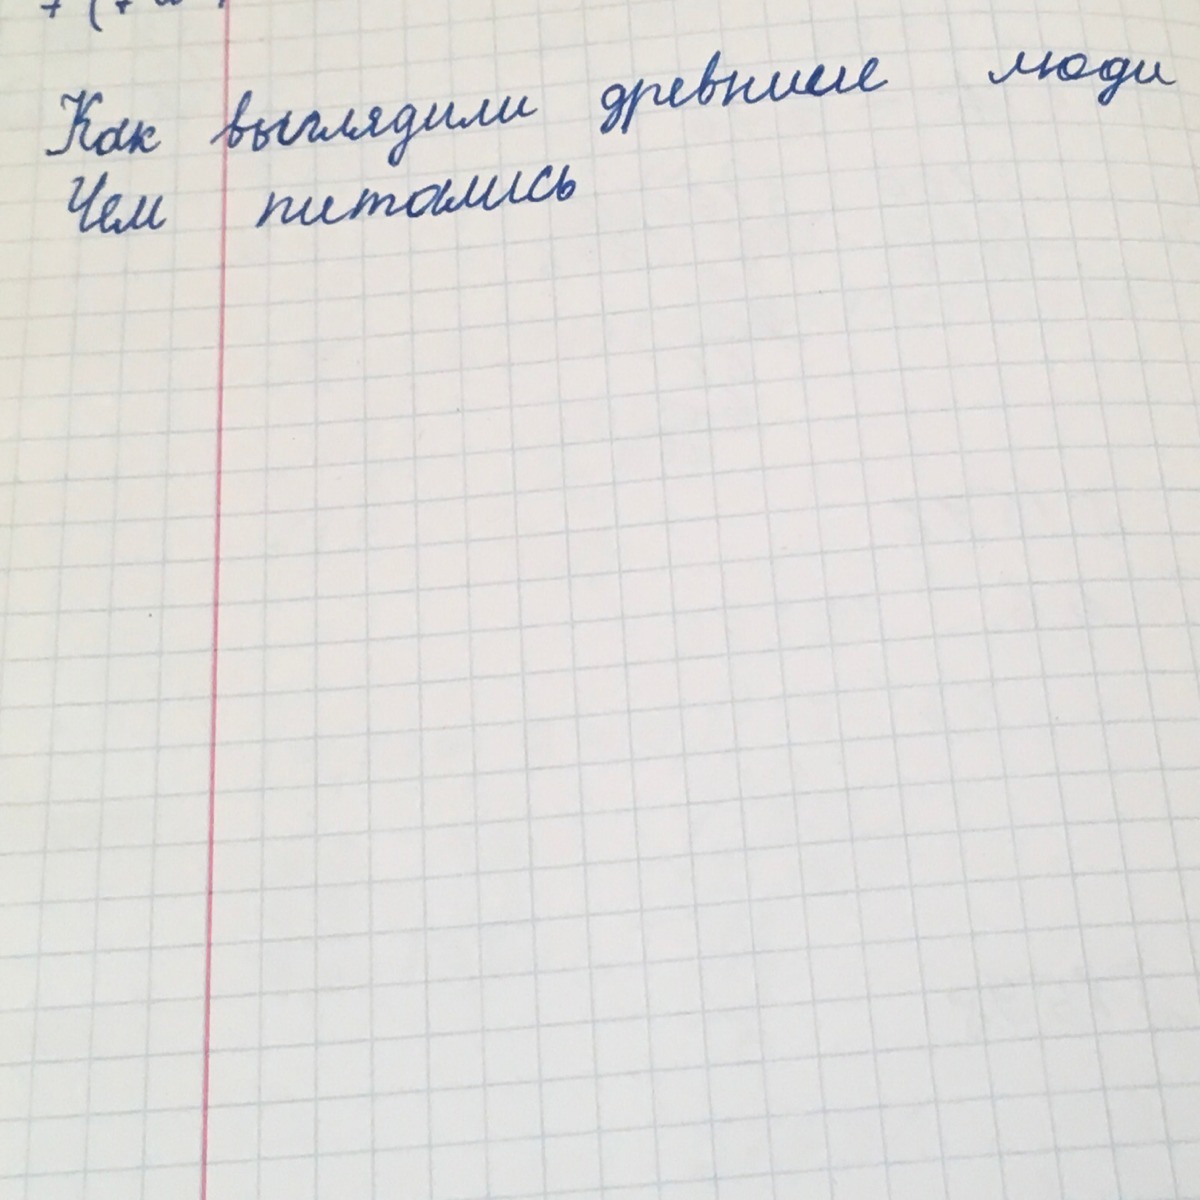 Как выглядили древние люди
Чем питались